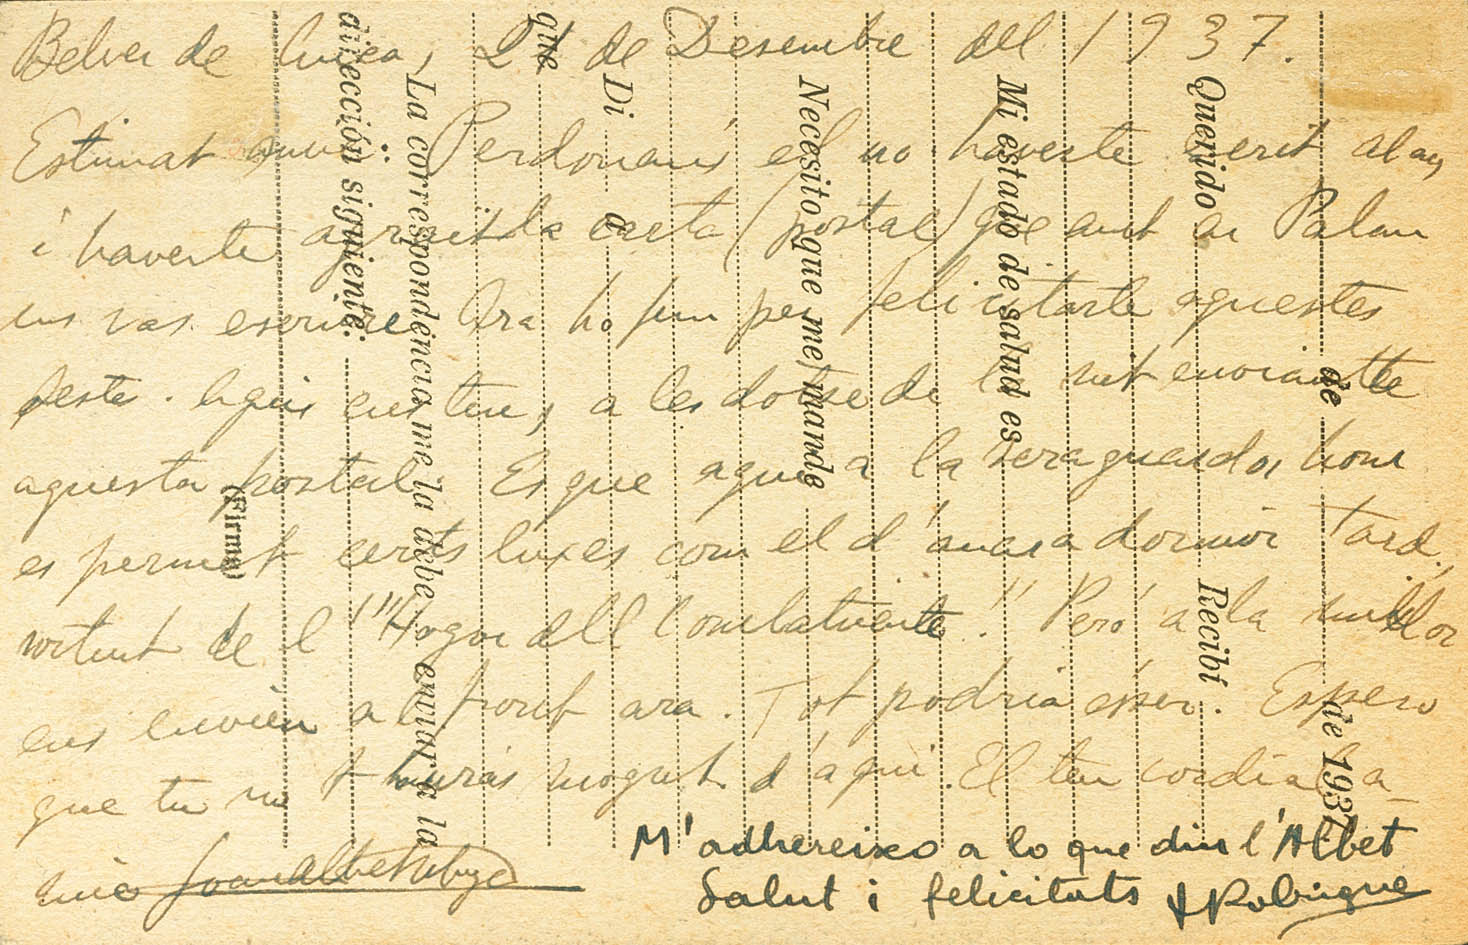 Belver de Cinca, 21 de Desembre del 1937.
Estimat amic: Perdonaràs el no haverte escrit abans
i haverte agrait la carta (postal) que ant a Palau
ens vas escriure. Ara ho fem per felicitarte aquestes
festes. Aquí ens tens, a les dotse de la nit enviantte
aquesta postal. Es que aquí a la reraguarda, hom
es permet certs luxes com el d'anar a dormir tard,
sortint de l'"Hogar del Combatiente." Peró a la millor
ens envien al front ara. Tot podria ésser. Espero
que tu no t hauràs mogut d'aquí. El teu cordial a-
mic Joan Albet
M'adhereixo a lo que diu l'Albet
Salut i felicitats
Querido
de
de 1937
Recibí
Mi estado de salud es
Necesito que me mande
Di a
que
La correspondencia me la debe enviar a la
dirección siguiente:
(Firma)